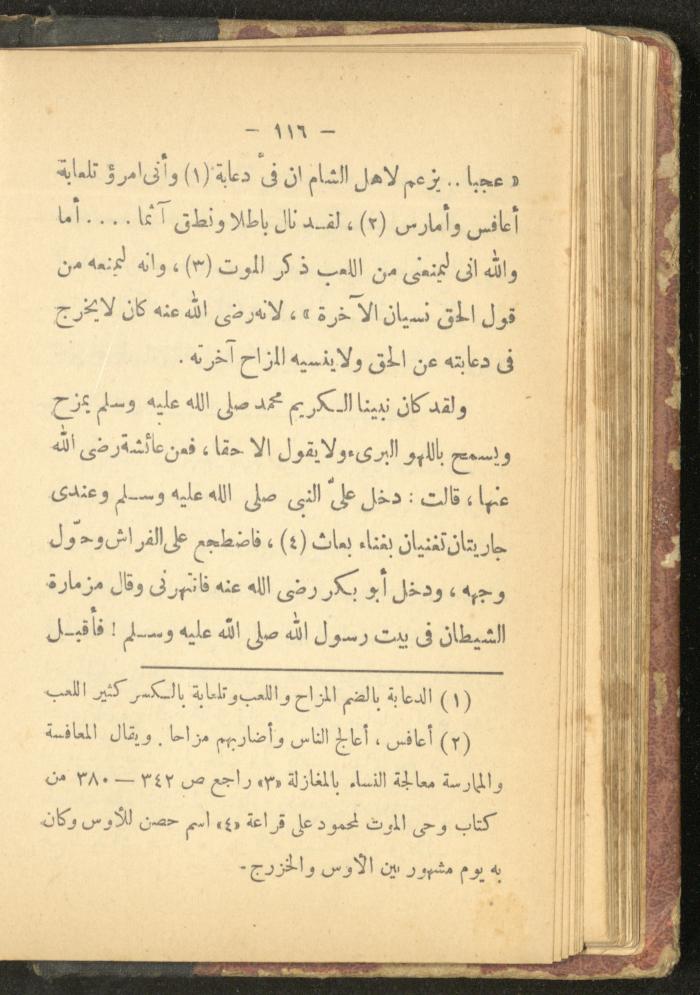 — ١١٦ —
« عجبا .. يزعم لاهل الشام ان فىّ دعابة (١) وأنى امرؤ تلعابة
أعافس وأمارس (٢) ، لقد نال باطلا ونطق آثما .... أما
والله انى ليمنعنى من اللعب ذكر الموت (٣) ، وانه ليمنعه من
قول الحق نسيان الآخرة » ، لانه رضى الله عنه كان لايخرج
فى دعابته عن الحق ولا ينسيه المزاح آخرته .
ولقد كان نبينا الكريم محمد صلى الله عليه وسلم يمزح
ويسمح باللهو البرىء ولا يقول الا حقا ، فعن عائشة رضى الله
عنها ، قالت : دخل علىّ النبى صلى الله عليه وسلم وعندى
جاريتان تغنيان بغناء بعاث (٤) ، فاضطجع على الفراش وحوّل
وجهه ، ودخل أبو بكر رضى الله عنه فانتهرنى وقال مزمارة
الشيطان فى بيت رسول الله صلى الله عليه وسلم ! فأقبل
(١) الدعابة بالضم المزاح واللعب وتلعابة بالسكسر كثير اللعب
(٢) أعافس ، أعالج الناس وأضاربهم مزاحا . ويقال المعافسة
والممارسة معالجة النساء بالمغازلة «٣» راجع ص ٣٤٢ — ٣٨٠ من
كتاب وحى الموت لمحمود على قراعة «٤» اسم حصن للأوس وكان
به يوم مشهور بين الأوس والخزرج -